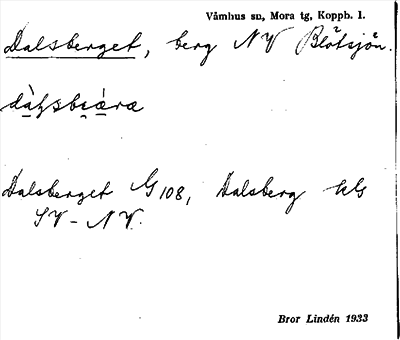 Våmhus sn, Mora tg, Koppb. l.
Dalsberget, berg NV Blötsjön.
Dalsberget G 108, Dalsberg kls
SV - NV.
Bror Lindén 1933